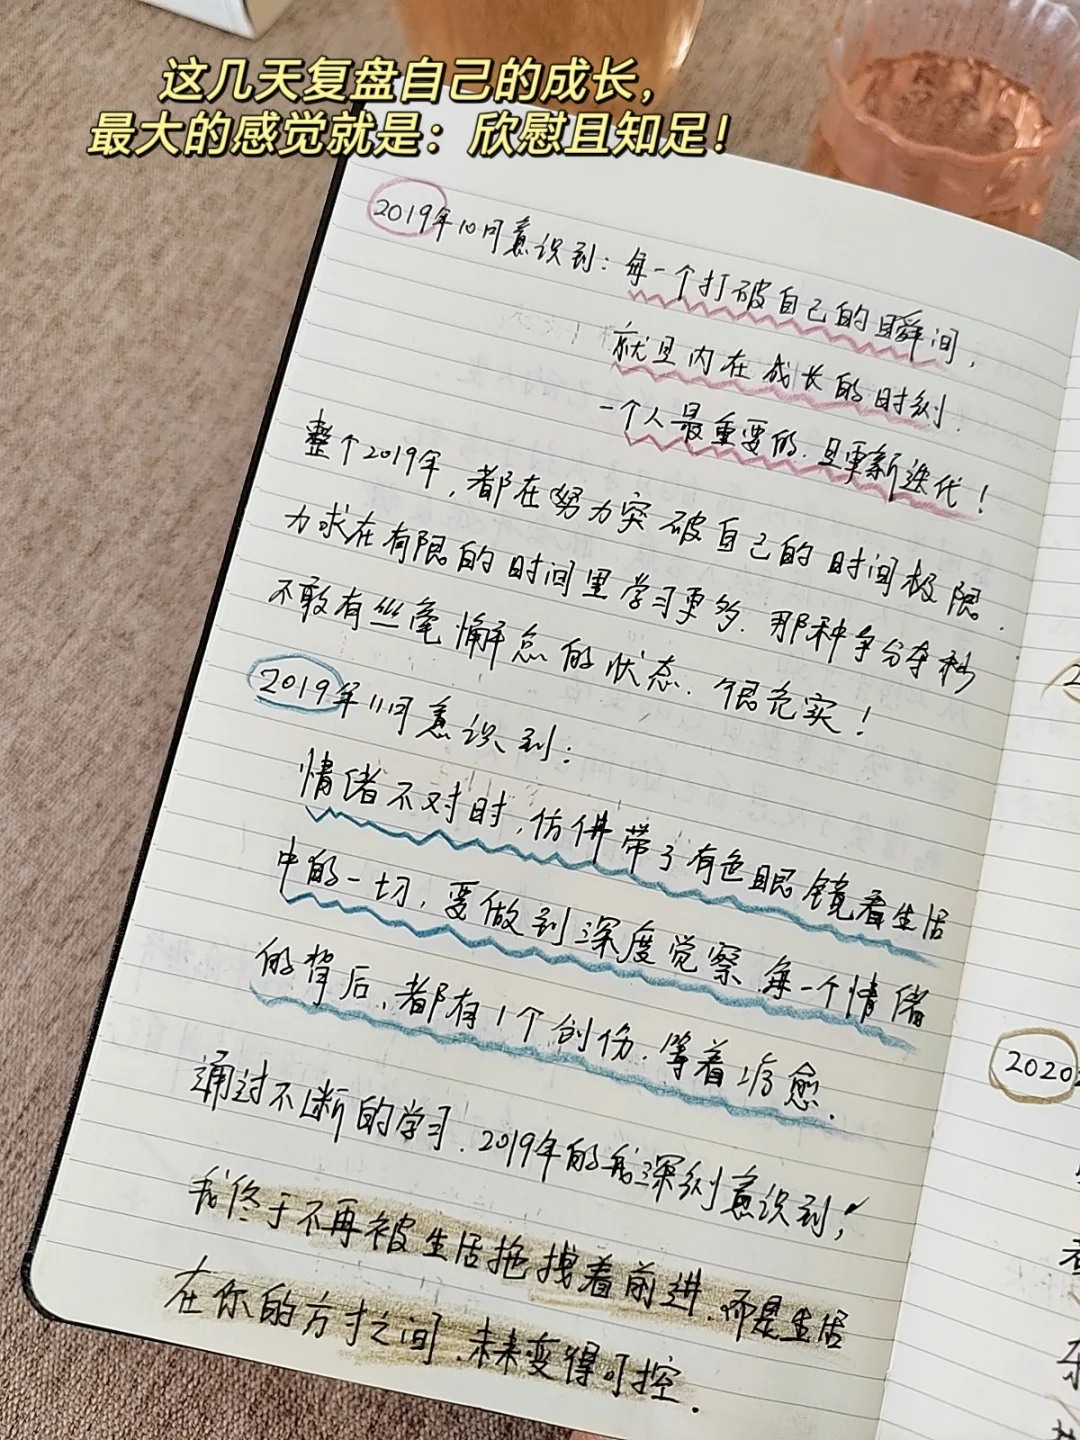 这几天复盘自己的成长，
最大的感觉就是：欣慰且知足！
2019年10月意识到：每一个打破自己的瞬间，
就是内在成长的时刻.
一个人最重要的.是更新迭代！
整个2019年，都在努力突破自己的时间极限.
力求在有限的时间里学习更多.那种争分夺秒
不敢有丝毫懈怠的状态.很充实！
2019年11月意识到：
情绪不对时,仿佛带了有色眼镜看生活
中的一切,要做到深度觉察.每一个情绪
的背后,都有1个创伤.等着治愈.
通过不断的学习.2019年的我深刻意识到；
我终于不再被生活拖拽着前进.而是生活
在你的方寸之间.未来变得可控.
2020